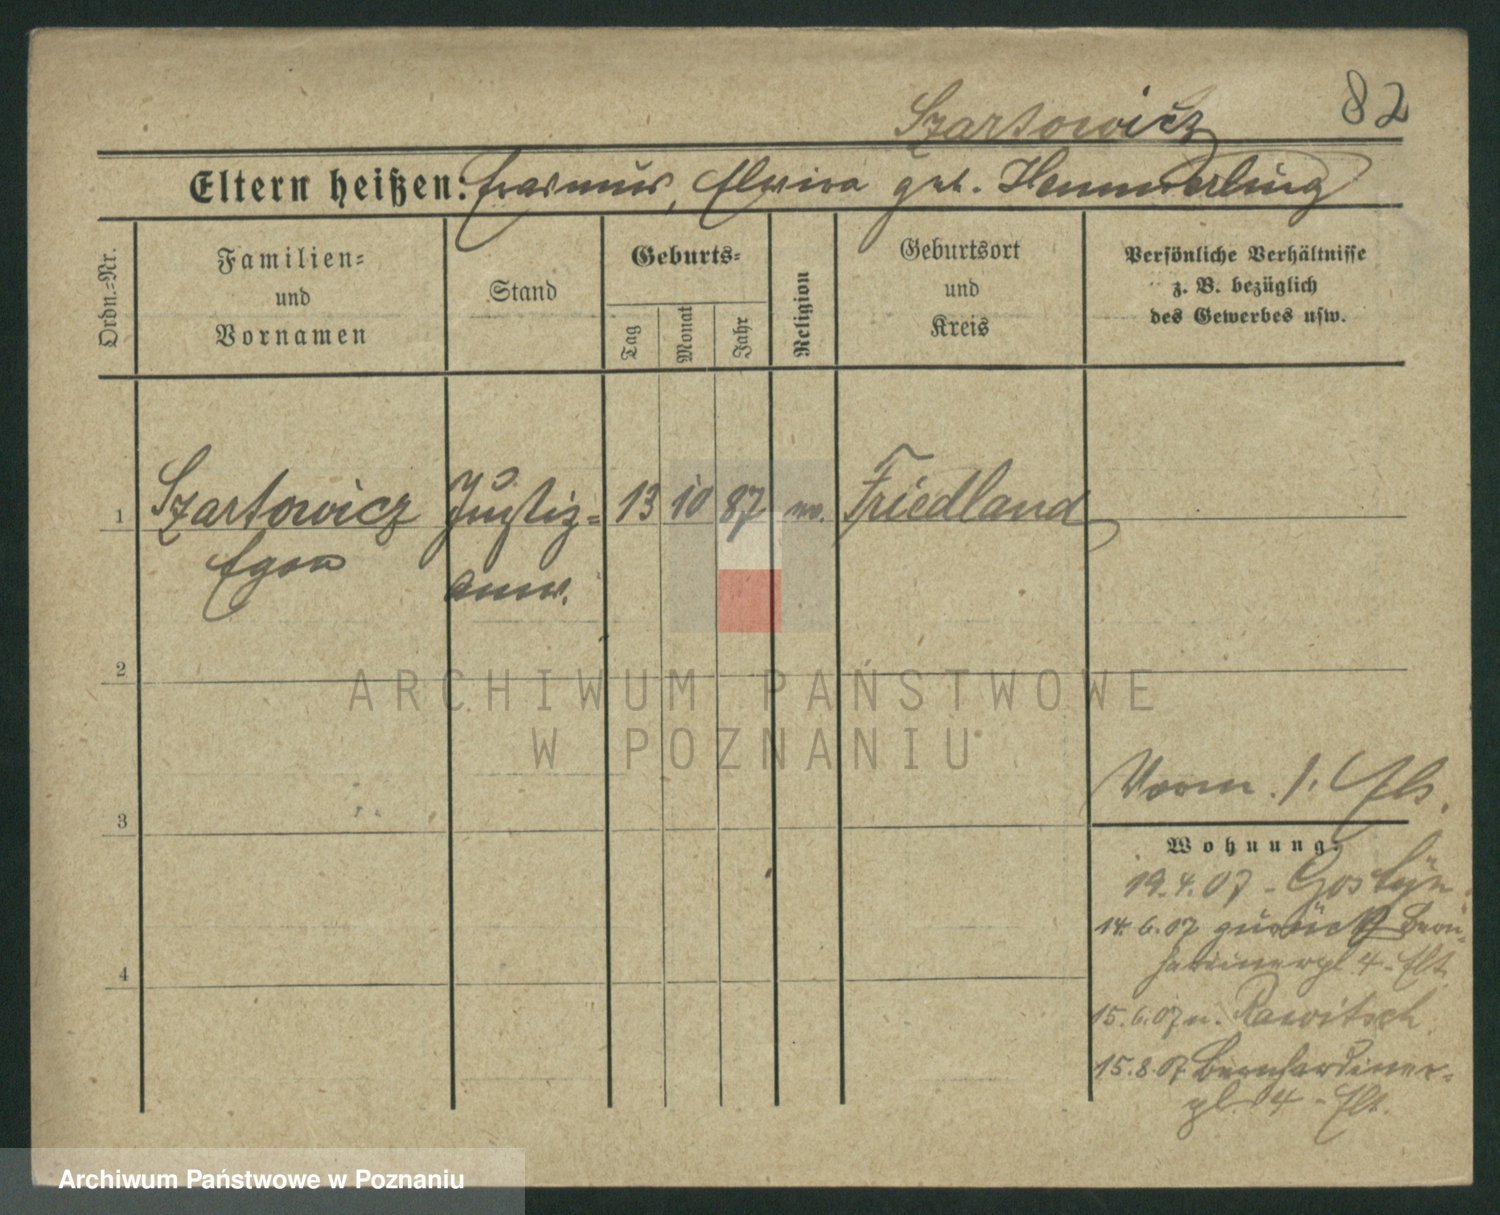 82
Szartowicz
Eltern heißen: Erasmus, Elvira geb. Hemmerling
Ordn.-Nr.
Familien-
und
Vornamen
Stand
Geburts-
Tag
Monat
Jahr
Religion
Geburtsort
und
Kreis
Persönliche Verhältnisse
z. B. bezüglich
des Gewerbes usw.
1 Szartowicz Justiz- 13 10 87 Friedland
Egon anw.
2
ARCHIWUM PAŃSTWOWE
W POZNANIU
3
Vorm.
Wohnung:
19.4.07 - Gostyn
14.6.07 zurück Bern-
hardinerpl 4 - Elt.
15.6.07 n. Rawitsch
15.8.07 Bernhardiner-
pl. 4 - Elt.
4
Archiwum Państwowe w Poznaniu